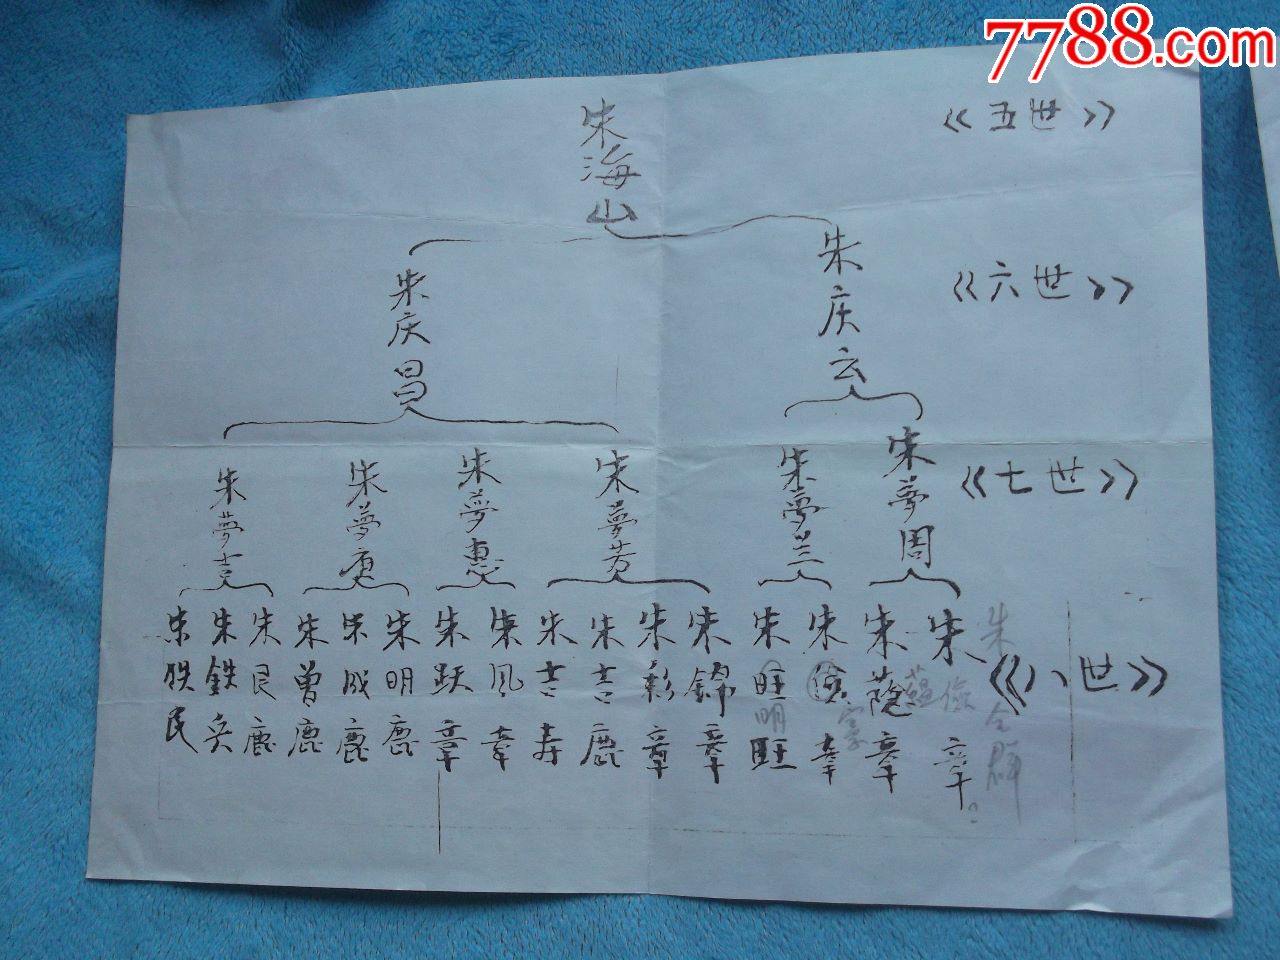 7788.com
朱海山
《五世》
朱庆昌
朱庆云
《六世》
朱夢吉
朱夢庚
朱夢惠
朱夢芳
朱夢兰
朱夢周
《七世》
朱铁民
朱鉄兵
朱艮鹿
朱曾鹿
朱成鹿
朱明鹿
朱跃章
朱凤章
朱吉寿
朱吉鹿
朱彩章
朱錦章
朱旺旺
明
朱俭章
朱蔭章
朱儉章
朱
《八世》